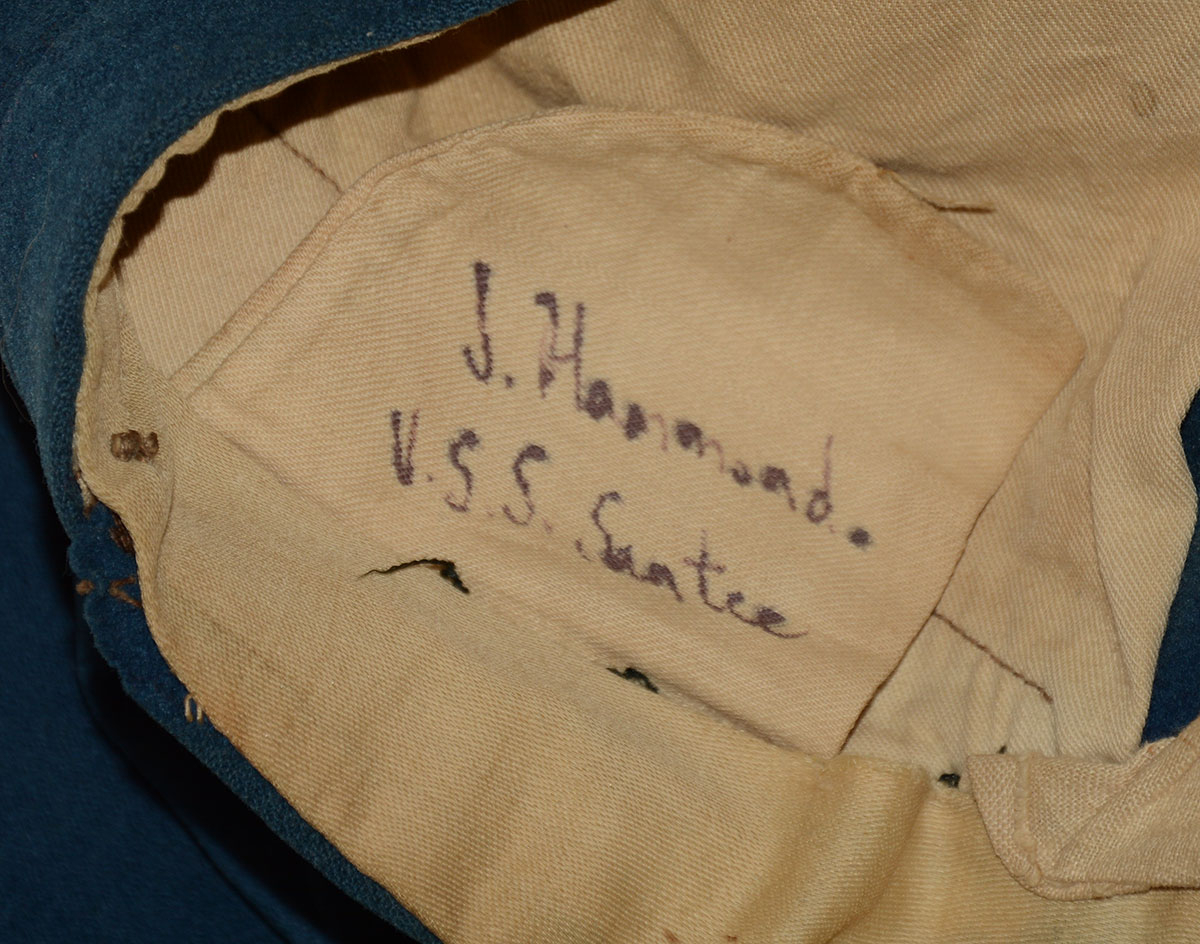 J. Hammond.
U.S.S. Santee